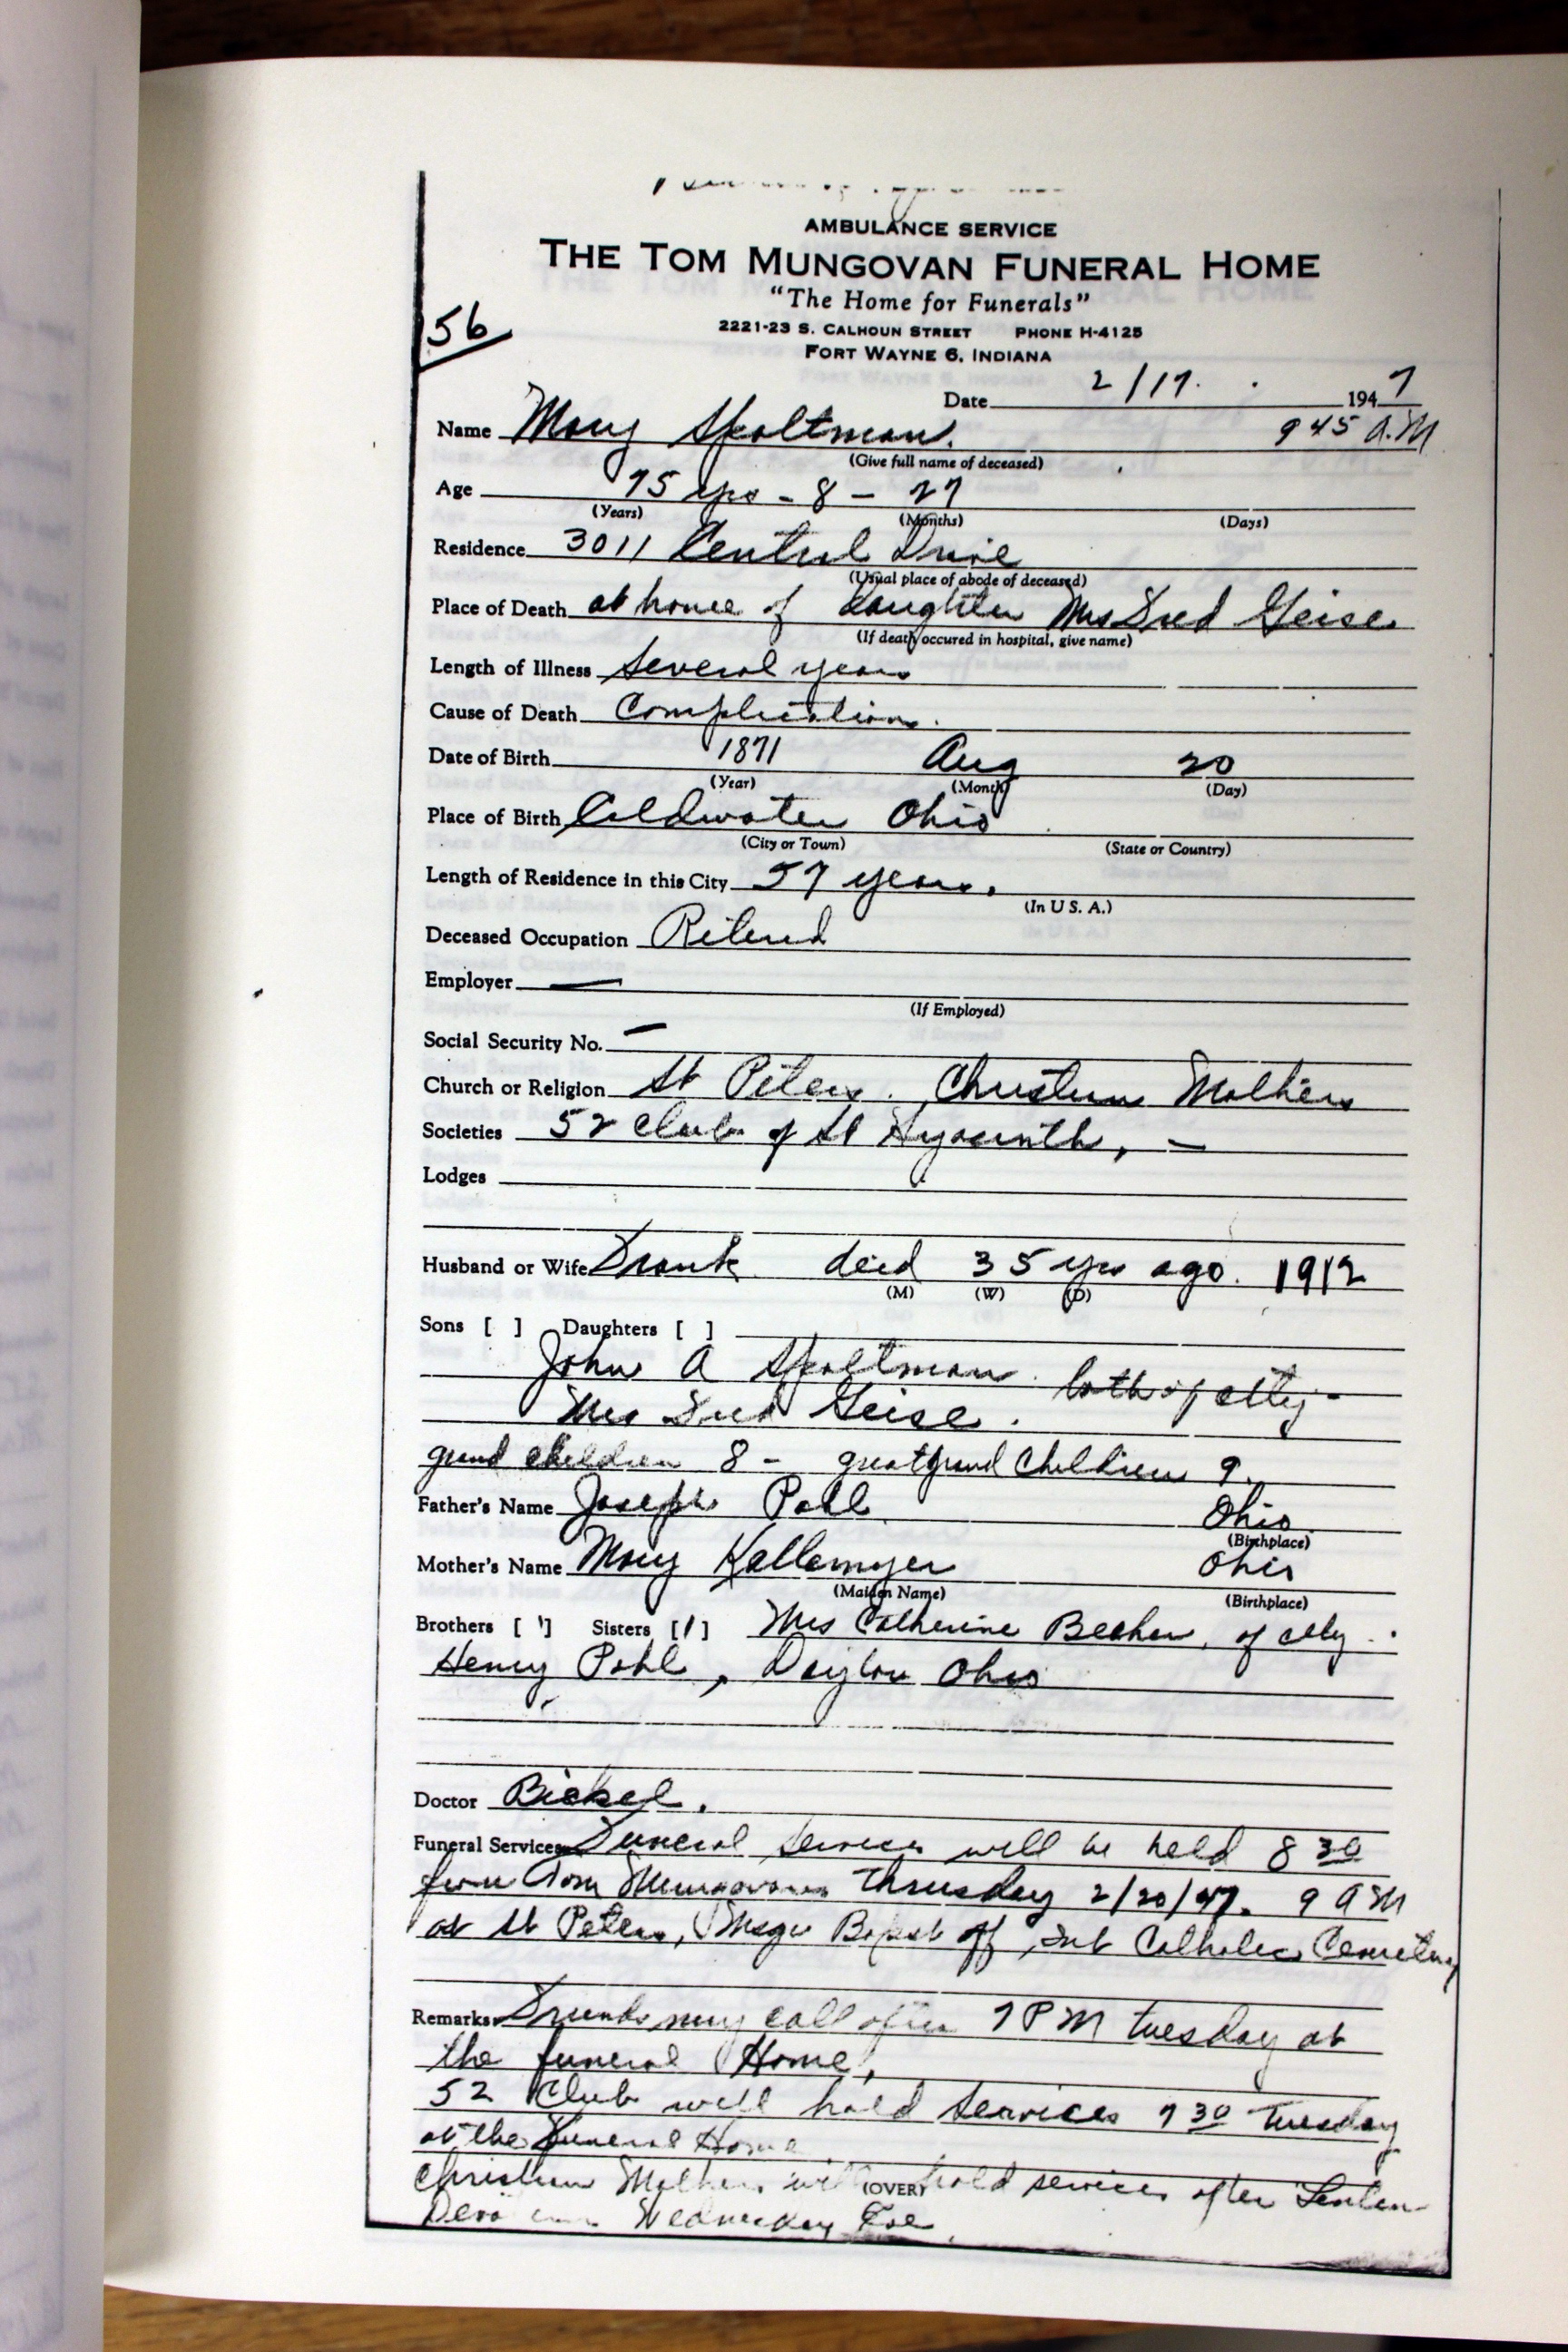 AMBULANCE SERVICE
THE TOM MUNGOVAN FUNERAL HOME
"The Home for Funerals"
2221-23 S. CALHOUN STREET PHONE H-4125
FORT WAYNE 6, INDIANA
56
Date 2/17. 1947
Name Mary Spoltman. 9 45 A.M
(Give full name of deceased)
Age 75 yrs - 8 - 27
(Years) (Months) (Days)
Residence 3011 Central Drive
(Usual place of abode of deceased)
Place of Death at home of daughter Mrs Fred Geise
(If death occured in hospital, give name)
Length of Illness Several years
Cause of Death Complications.
Date of Birth 1871 Aug 20
(Year) (Month) (Day)
Place of Birth Coldwater Ohio
(City or Town) (State or Country)
Length of Residence in this City 57 years.
(In U S. A.)
Deceased Occupation Retired
Employer —
(If Employed)
Social Security No. —
Church or Religion St Peters. Christian Mothers
Societies 52 Club of St Hyacinth, —
Lodges
Husband or Wife Frank died 35 yrs ago. 1912
(M) (W) (D)
Sons [ ] Daughters [ ]
John A Spoltman. both of city -
Mrs Fred Geise.
grand children 8 - great grand children 9.
Father's Name Joseph Pohl Ohio
(Birthplace)
Mother's Name Mary Kallamyer Ohio
(Maiden Name) (Birthplace)
Brothers [1] Sisters [1] Mrs Catherine Becker, of city.
Henry Pohl, Dayton Ohio
Doctor Bickel.
Funeral Services Funeral Services will be held 8 30
from Tom Mungovans Thrusday 2/20/47. 9 A M
at St Peters, Msgr off, Int Catholic Cemetery
Remarks Friends may call after 7 P M Tuesday at
the funeral Home,
52 Club will hold Services 7 30 Tuesday
at the Funeral Home
Christian Mothers will hold services after Lenten
(OVER)
Wednesday Eve.